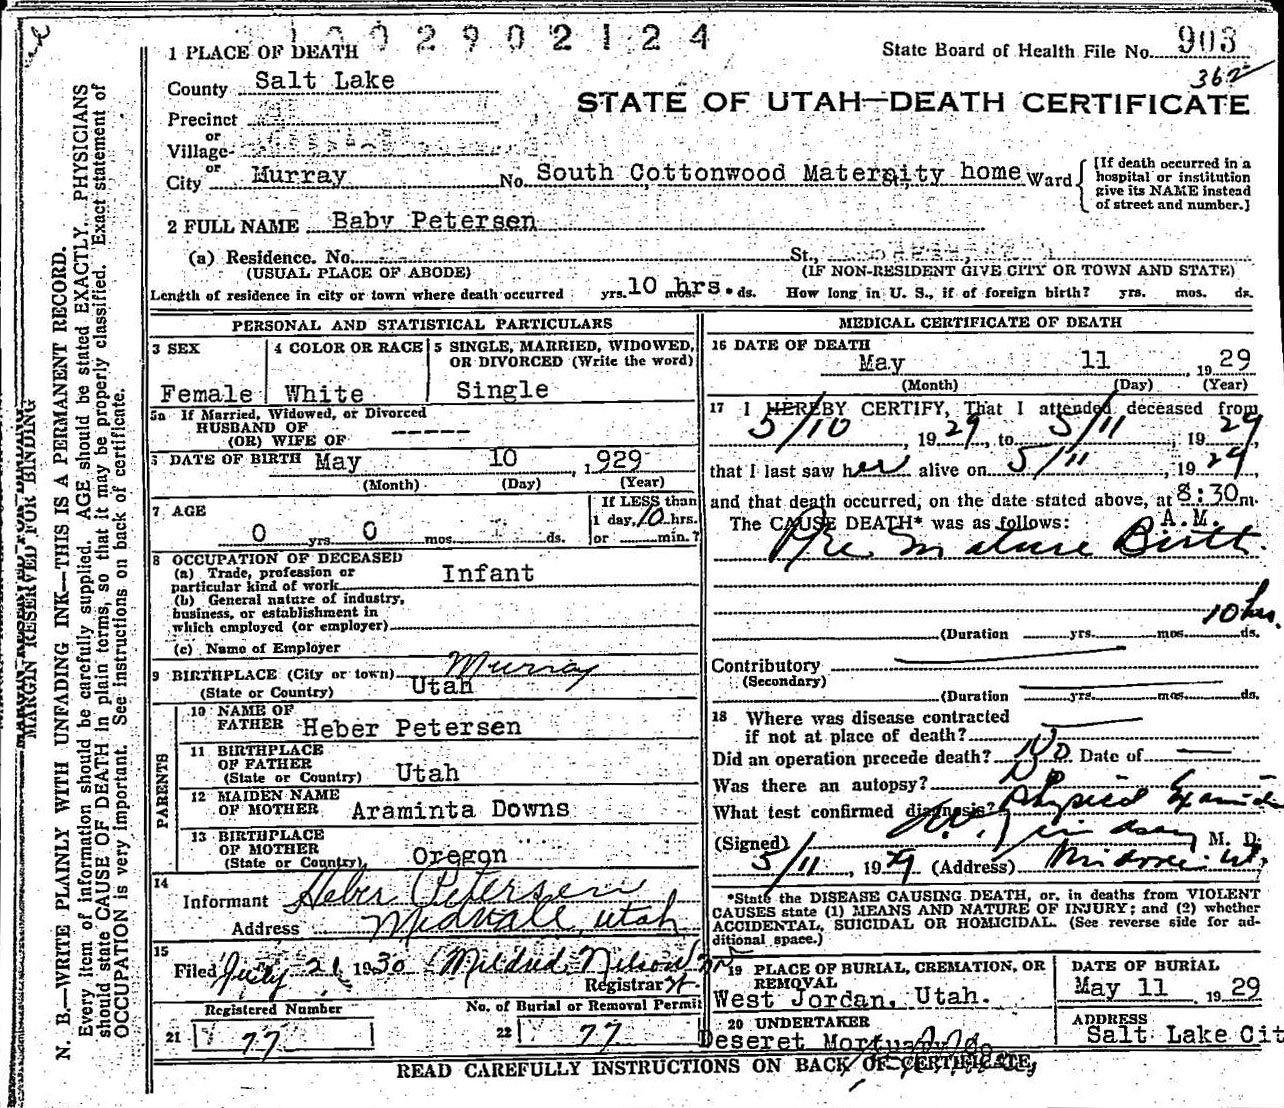 1002902124
State Board of Health File No. 903
362
STATE OF UTAH—DEATH CERTIFICATE
1 PLACE OF DEATH
County Salt Lake
Precinct
or
Village
or
City Murray No. South Cottonwood Maternity home Ward
[If death occurred in a
hospital or institution
give its NAME instead
of street and number.]
2 FULL NAME Baby Petersen
(a) Residence. No. St.,
(USUAL PLACE OF ABODE) (IF NON-RESIDENT GIVE CITY OR TOWN AND STATE)
Length of residence in city or town where death occurred yrs. 10 hrs. mos. ds. How long in U. S., if of foreign birth? yrs. mos. ds.
PERSONAL AND STATISTICAL PARTICULARS
3 SEX 4 COLOR OR RACE 5 SINGLE, MARRIED, WIDOWED,
OR DIVORCED (Write the word)
Female White Single
5a If Married, Widowed, or Divorced
HUSBAND OF
(OR) WIFE OF -----
DATE OF BIRTH May 10 , 1929
(Month) (Day) (Year)
7 AGE If LESS than
1 day, 10 hrs.
0 yrs. 0 mos. ds. or min.?
8 OCCUPATION OF DECEASED
(a) Trade, profession or
particular kind of work Infant
(b) General nature of industry,
business, or establishment in
which employed (or employer)
(c) Name of Employer
9 BIRTHPLACE (City or town) Murray
(State or Country) Utah
PARENTS
10 NAME OF
FATHER Heber Petersen
11 BIRTHPLACE
OF FATHER
(State or Country) Utah
12 MAIDEN NAME
OF MOTHER Araminta Downs
13 BIRTHPLACE
OF MOTHER
(State or Country) Oregon
14
Informant Heber Petersen
Address Midvale, Utah
15
Filed July 21, 1930 Mildred Nelson
Registrar
Registered Number No. of Burial or Removal Permit
21 77 22 77
MEDICAL CERTIFICATE OF DEATH
16 DATE OF DEATH
May 11 , 1929
(Month) (Day) (Year)
17 I HEREBY CERTIFY, That I attended deceased from
5/10, 1929, to 5/11, 1929,
that I last saw her alive on 5/11, 1929
and that death occurred, on the date stated above, at 8:30 m.
The CAUSE DEATH* was as follows: A.M.
Pre mature Birth.
10 hrs.
(Duration yrs. mos. ds.
Contributory
(Secondary)
(Duration yrs. mos. ds.
18 Where was disease contracted
if not at place of death?
Did an operation precede death? No Date of
Was there an autopsy?
What test confirmed diagnosis? Physical
(Signed) M. D.
5/11, 1929 (Address)
*State the DISEASE CAUSING DEATH, or, in deaths from VIOLENT
CAUSES state (1) MEANS AND NATURE OF INJURY; and (2) whether
ACCIDENTAL, SUICIDAL OR HOMICIDAL. (See reverse side for ad-
ditional space.)
19 PLACE OF BURIAL, CREMATION, OR
REMOVAL
West Jordan, Utah.
DATE OF BURIAL
May 11 , 1929
20 UNDERTAKER
Deseret Mortuary Co
ADDRESS
Salt Lake Cit
READ CAREFULLY INSTRUCTIONS ON BACK OF CERTIFICATE,
MARGIN RESERVED FOR BINDING
N. B.—WRITE PLAINLY WITH UNFADING INK—THIS IS A PERMANENT RECORD.
Every item of information should be carefully supplied. AGE should be stated EXACTLY. PHYSICIANS
should state CAUSE OF DEATH in plain terms, so that it may be properly classified. Exact statement of
OCCUPATION is very important. See instructions on back of certificate.